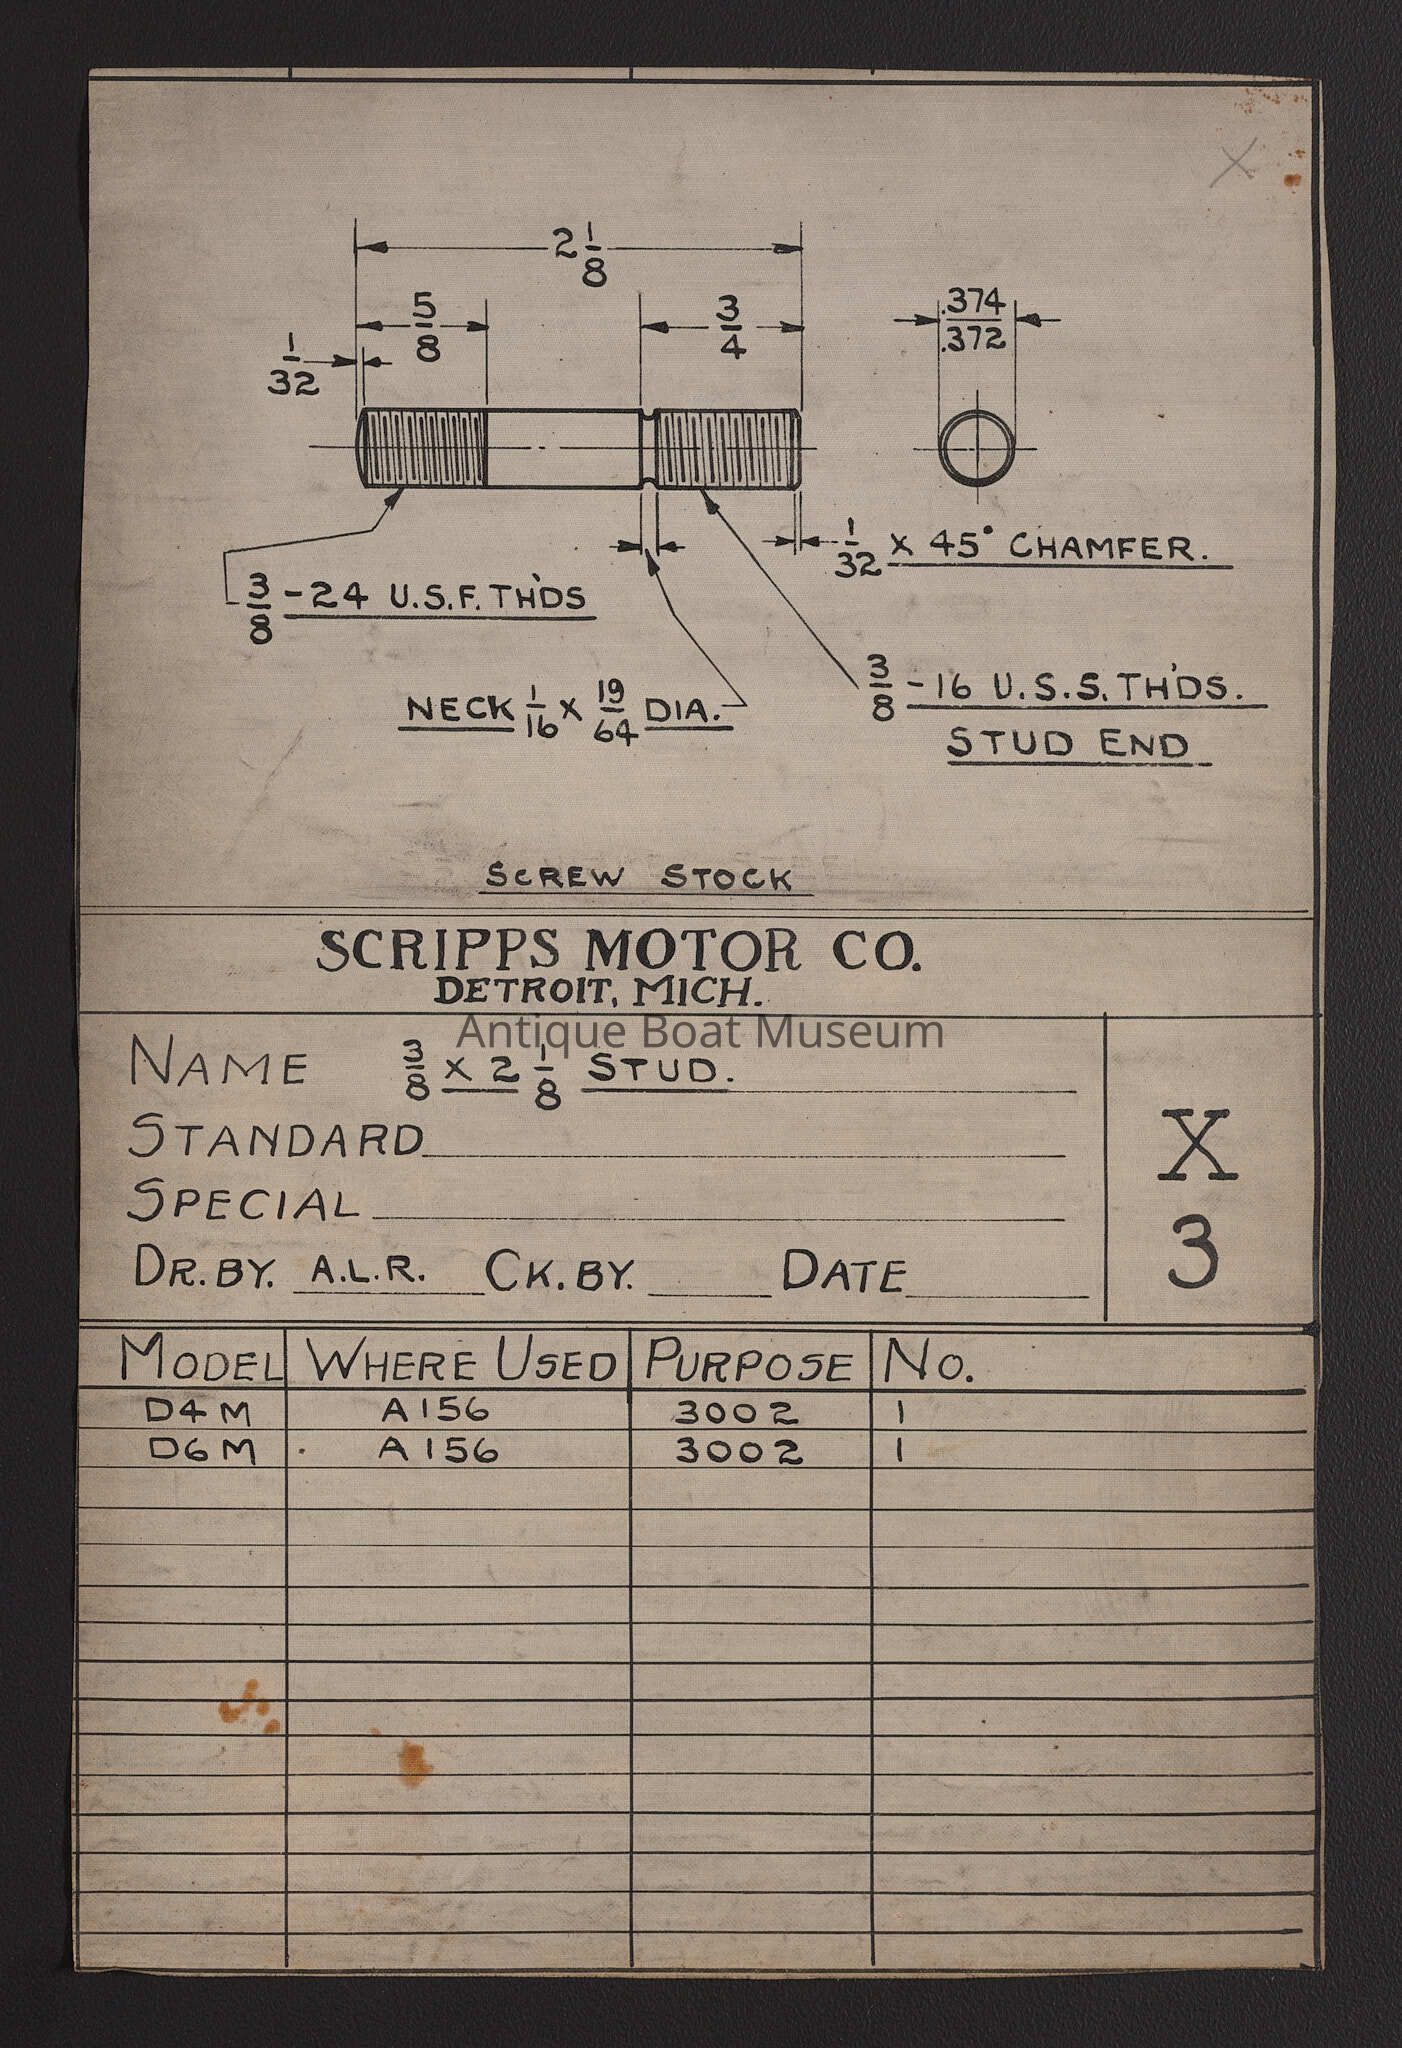 X
2 1/8
5/8
3/4
.374
.372
1/32
1/32 X 45° CHAMFER.
3/8 - 24 U.S.F. TH'DS
3/8 - 16 U.S.S. TH'DS.
STUD END
NECK 1/16 X 19/64 DIA.
SCREW STOCK
SCRIPPS MOTOR CO.
DETROIT, MICH.
Antique Boat Museum
NAME 3/8 X 2 1/8 STUD.
STANDARD
SPECIAL
DR. BY. A.L.R. CK. BY. DATE
X
3
MODEL WHERE USED PURPOSE NO.
D4M A156 3002 1
D6M A156 3002 1